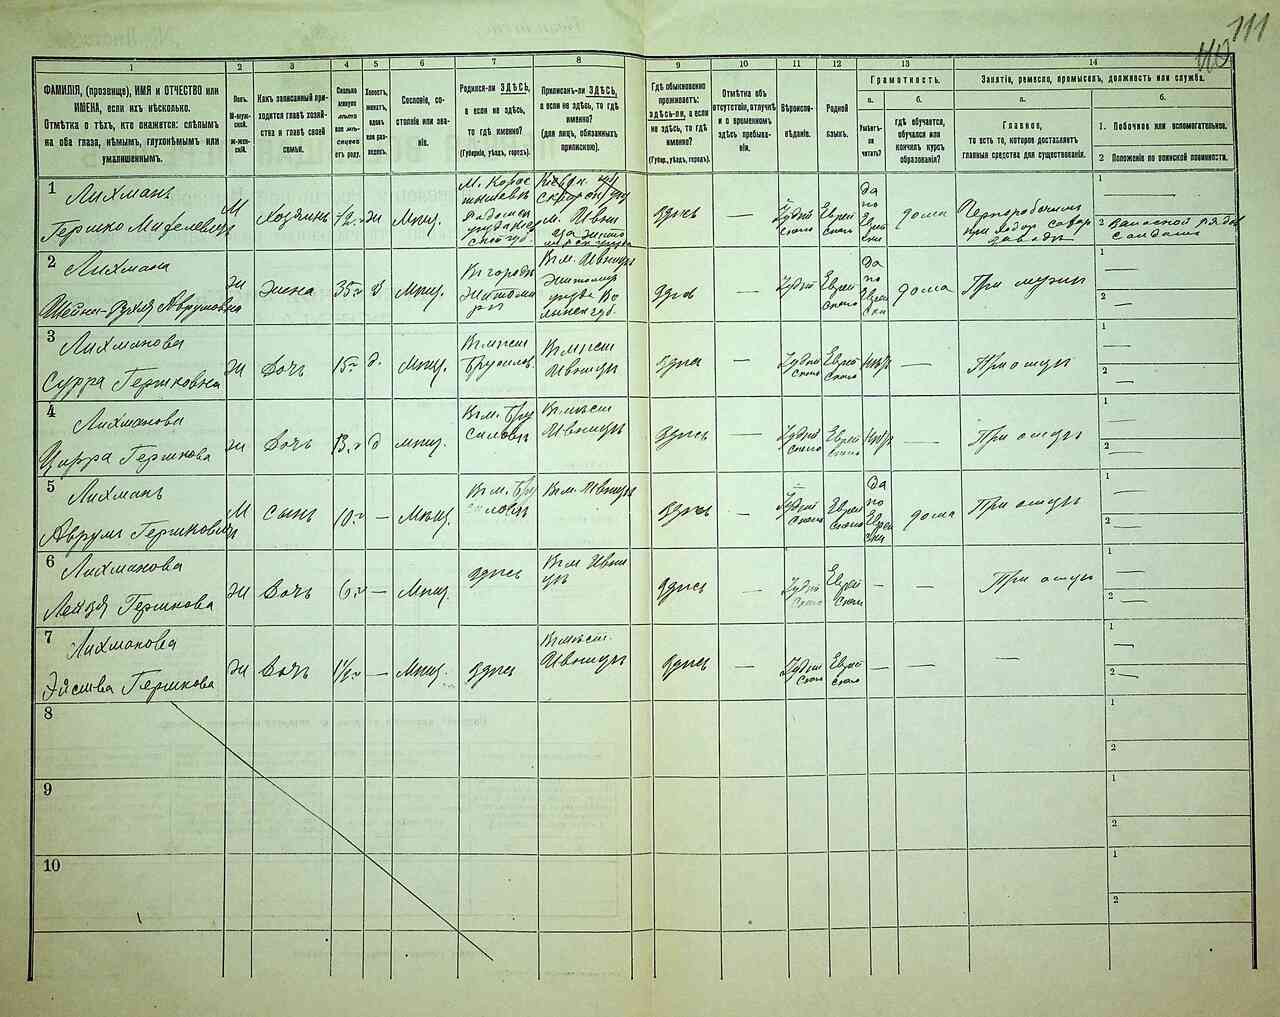 111
110
1
2
3
4
5
6
7
8
9
10
11
12
13
14
ФАМИЛІЯ, (прозвище), ИМЯ и ОТЧЕСТВО или
ИМЕНА, если ихъ нѣсколько.
Отмѣтка о тѣхъ, кто окажется: слѣпымъ
на оба глаза, нѣмымъ, глухонѣмымъ или
умалишеннымъ.
Полъ.
М-мужской.
Ж-женскій.
Какъ записанный при-
ходится главѣ хозяй-
ства и главѣ своей
семьи.
Сколько
минуло
лѣтъ
или мѣ-
сяцевъ
отъ роду.
Холостъ,
женатъ,
вдовъ
или раз-
веденъ.
Сословіе, со-
стояніе или зва-
ніе.
Родился-ли ЗДѢСЬ,
а если не здѣсь,
то гдѣ именно?
(Губернія, уѣздъ, городъ).
Приписанъ-ли ЗДѢСЬ,
а если не здѣсь, то гдѣ
именно?
(для лицъ, обязанныхъ
припискою).
Гдѣ обыкновенно
проживаетъ:
здѣсь-ли, а если
не здѣсь, то гдѣ
именно?
(Губер., уѣздъ, городъ).
Отмѣтка объ
отсутствіи, отлучкѣ
и о временномъ
здѣсь пребыва-
ніи.
Вѣроиспо-
вѣданіе.
Родной
языкъ.
Грамотность.
а.
Умѣетъ-
ли
читать?
б.
гдѣ обучается,
обучался или
кончилъ курсъ
образованія?
Занятіе, ремесло, промыселъ, должность или служба.
а.
Главное,
то есть то, которое доставляетъ
главныя средства для существованія.
б.
1. Побочное или вспомогательное.
2 Положеніе по воинской повинности.
1
Лихманъ
Гершко
М
Хозяинъ
42
Мѣщ.
здѣсь
—
Іудей
ское
Еврей
ское
Да
по
Еврей
ски
дома
1
2
2
Лихмана
Шейна-Рухля Аврумовна
ж
Жена
35
Мѣщ.
Въ городѣ
Житоми
рѣ
здѣсь
—
Іудей
Еврей
ское
Да
по
Еврей
ски
дома
При мужѣ
1 —
2 —
3
Лихманова
Сурра Гершковна
ж
Дочь
15
д
Мѣщ.
Въ мѣст
Брусилов.
Въ мѣст
Ивницѣ
здѣсь
—
Іудей
ское
Еврей
ское
Нѣтъ
—
При отцѣ
1
2 —
4
Лихманова
Цирра Гершкова
ж
Дочь
13
д
Мѣщ.
Въ м. Бру
силовѣ
Въ мѣст
Ивницѣ
здѣсь
—
Іудей
ское
Еврей
ское
Нѣтъ
—
При отцѣ
1
2 —
5
Лихманъ
Аврумъ Гершковичъ
М
Сынъ
10
—
Мѣщ.
Въ м. Бру
силовѣ
Въ м. Ивницѣ
здѣсь
—
Іудей
ское
Еврей
ское
Да
по
Еврей
ски
дома
При отцѣ
1 —
2 —
6
Лихманова
Лейзя Гершкова
ж
Дочь
6
—
Мѣщ.
здѣсь
Въ м Ивни
цѣ
здѣсь
—
Іудей
ское
Еврей
ское
—
—
При отцѣ
1 —
2 —
7
Лихманова
Гершкова
ж
Дочь
—
Мѣщ.
здѣсь
Въ мѣст.
Ивницѣ
здѣсь
—
Іудей
ское
Еврей
ское
—
—
—
1 —
2 —
8
1
2
9
1
2
10
1
2